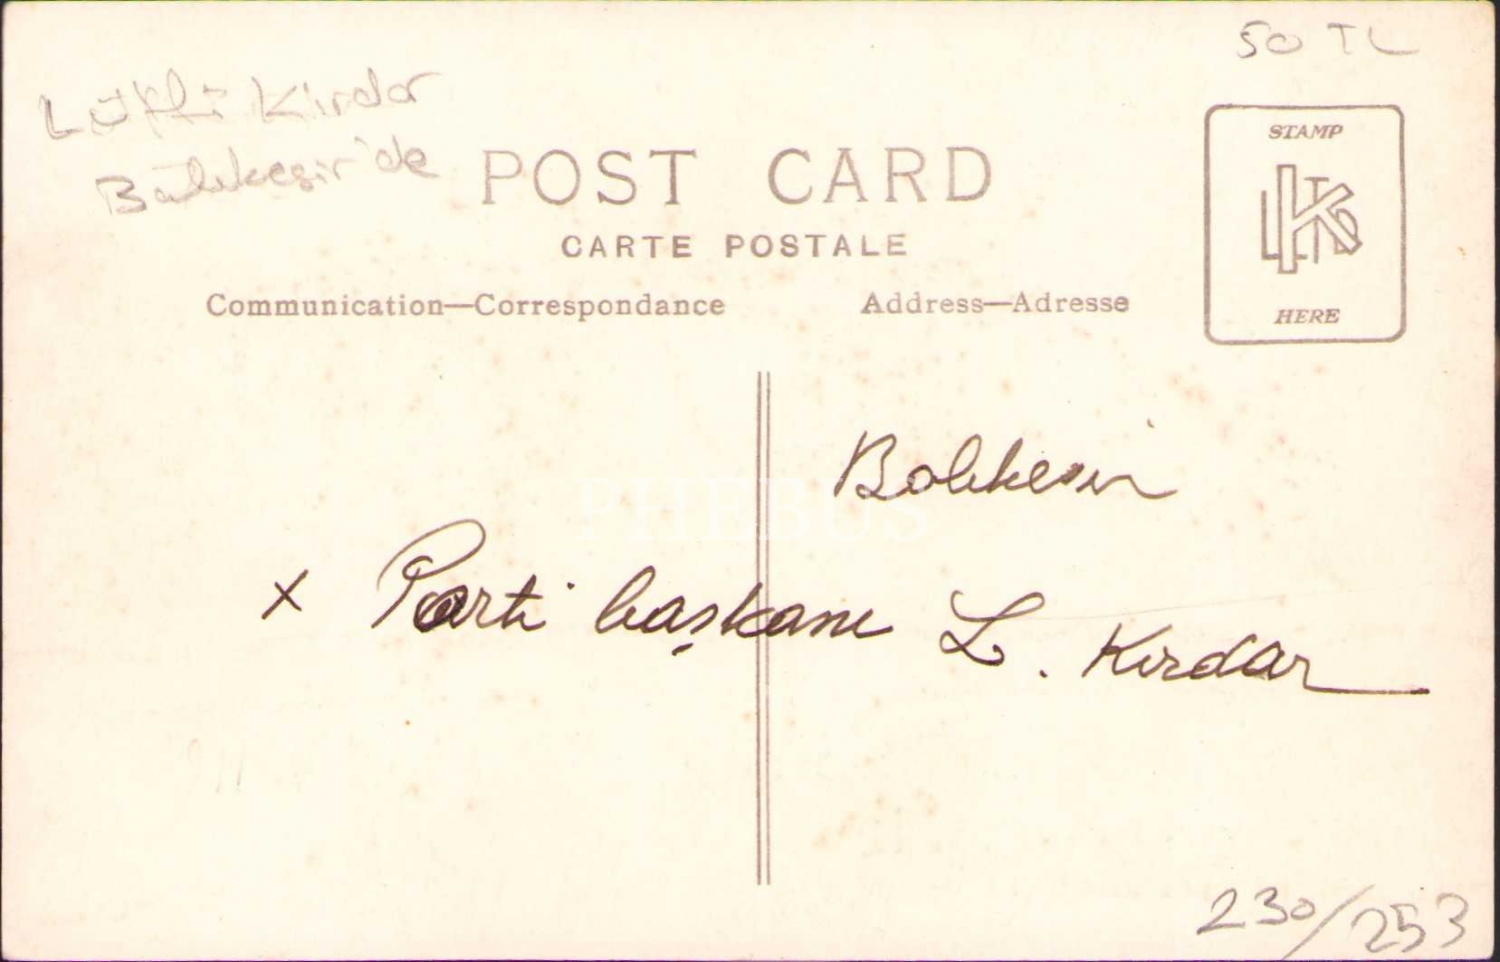 50 TL
Lütfi Kırdar
Balıkesir'de
POST CARD
CARTE POSTALE
Communication—Correspondance
Address—Adresse
STAMP
LTD
K
HERE
Balıkesir
PHEBUS
x Parti başkanı L. Kırdar
230/253